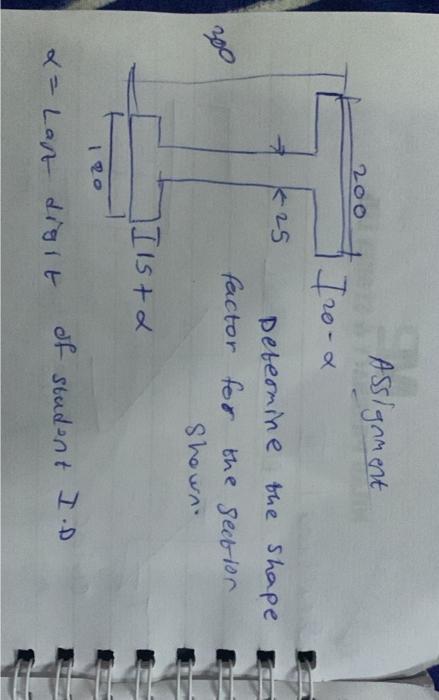 Assignment
200
I 20-α
300
25
Determine the shape
factor for the section
shown.
120
I 15+α
α = Last digit of student I.D